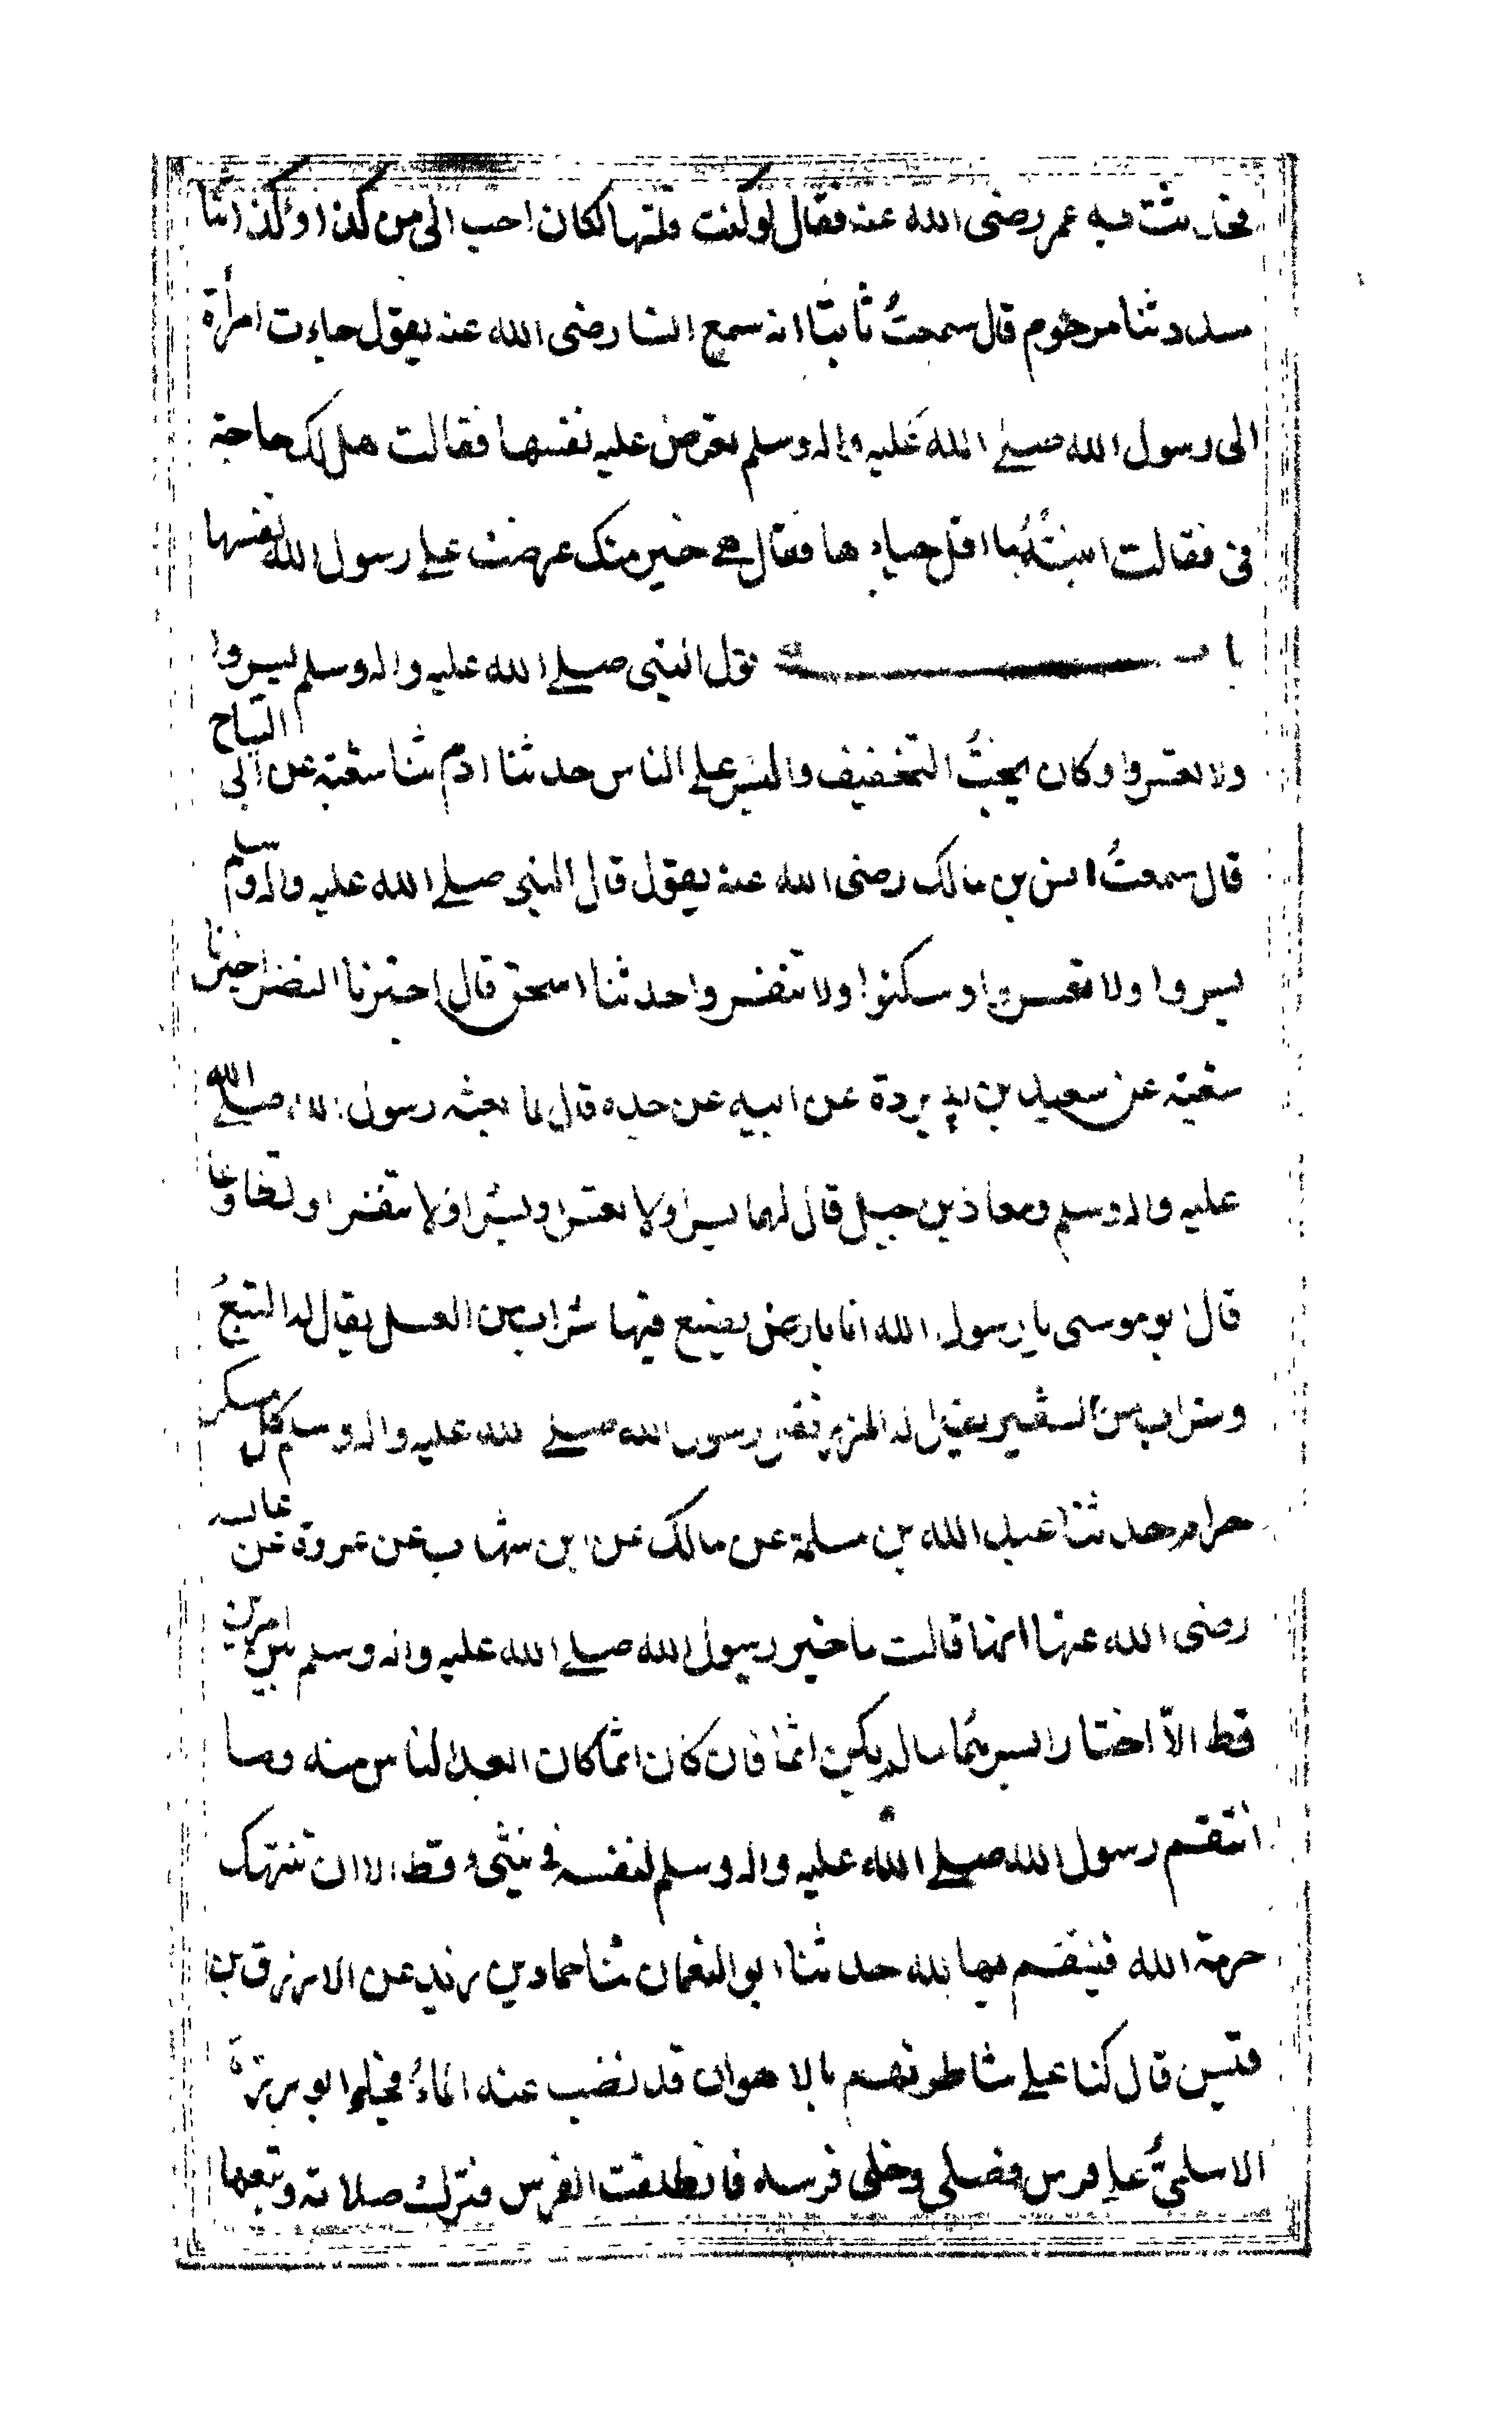 فحدثت به عمر رضى الله عنه فقال لو كنت قلتها لكان احب الى من كذا وكذا ثنا
مسدد ثنا مرحوم قال سمعتُ ثابتا انه سمع انسا رضى الله عنه يقول جاءت امرأة
الى رسول الله صلى الله عليه واله وسلم تعرض عليه نفسها فقالت هل لك حاجة
فى فقالت ابنتُهُ ما اقل حياءها فقال هى خير منك عرضت على رسول الله نفسها
باب قول النبى صلى الله عليه واله وسلم يسروا
ولا تعسروا وكان يحبُّ التخفيف واليسر على الناس حدثنا ادم ثنا شعبة عن ابى التياح
قال سمعتُ انس بن مالك رضى الله عنه يقول قال النبى صلى الله عليه واله وسلم
يسروا ولا تعسروا وسكنوا ولا تنفروا حدثنا اسحق قال اخبرنا النضر اخبرنا
شعبة عن سعيد بن بردة عن ابيه عن جده قال لما بعثه رسول الله صلى الله
عليه واله وسلم ومعاذ بن جبل قال لهما يسرا ولا تعسرا وبشرا ولا تنفرا وتطاوعا
قال ابو موسى يا رسول الله انا بارض يصنع فيها شراب من العسل يقال له البتعُ
وشراب من الشعير يقال له المزر فقال رسول الله صلى الله عليه واله وسلم كل مسكر
حرام حدثنا عبد الله بن مسلمة عن مالك عن ابن شهاب عن عروة عن عايشه
رضى الله عنها انها قالت ما خير رسول الله صلى الله عليه واله وسلم بين امرين
قط الّا اختار ايسرهما ما لم يكن اثما فان كان اثما كان ابعد الناس منه وما
انتقم رسول الله صلى الله عليه واله وسلم لنفسه فى شىء قط الا ان تنتهك
حرمة الله فينتقم بها لله حدثنا ابو النعمان ثنا حماد بن زيد عن الازرق بن
قيس قال كنا على شاطى نهر بالاهواز قد نضب عنه الماءُ فجاء ابو برزة
الاسلمىُّ على فرس فصلى وخلى فرسه فانطلقت الفرس فترك صلاته وتبعها